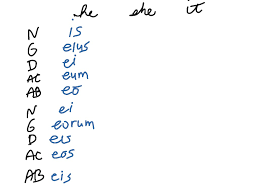 he she it
N is
G eius
D ei
AC eum
AB eō
N ei
G eorum
D eis
AC eos
AB eis